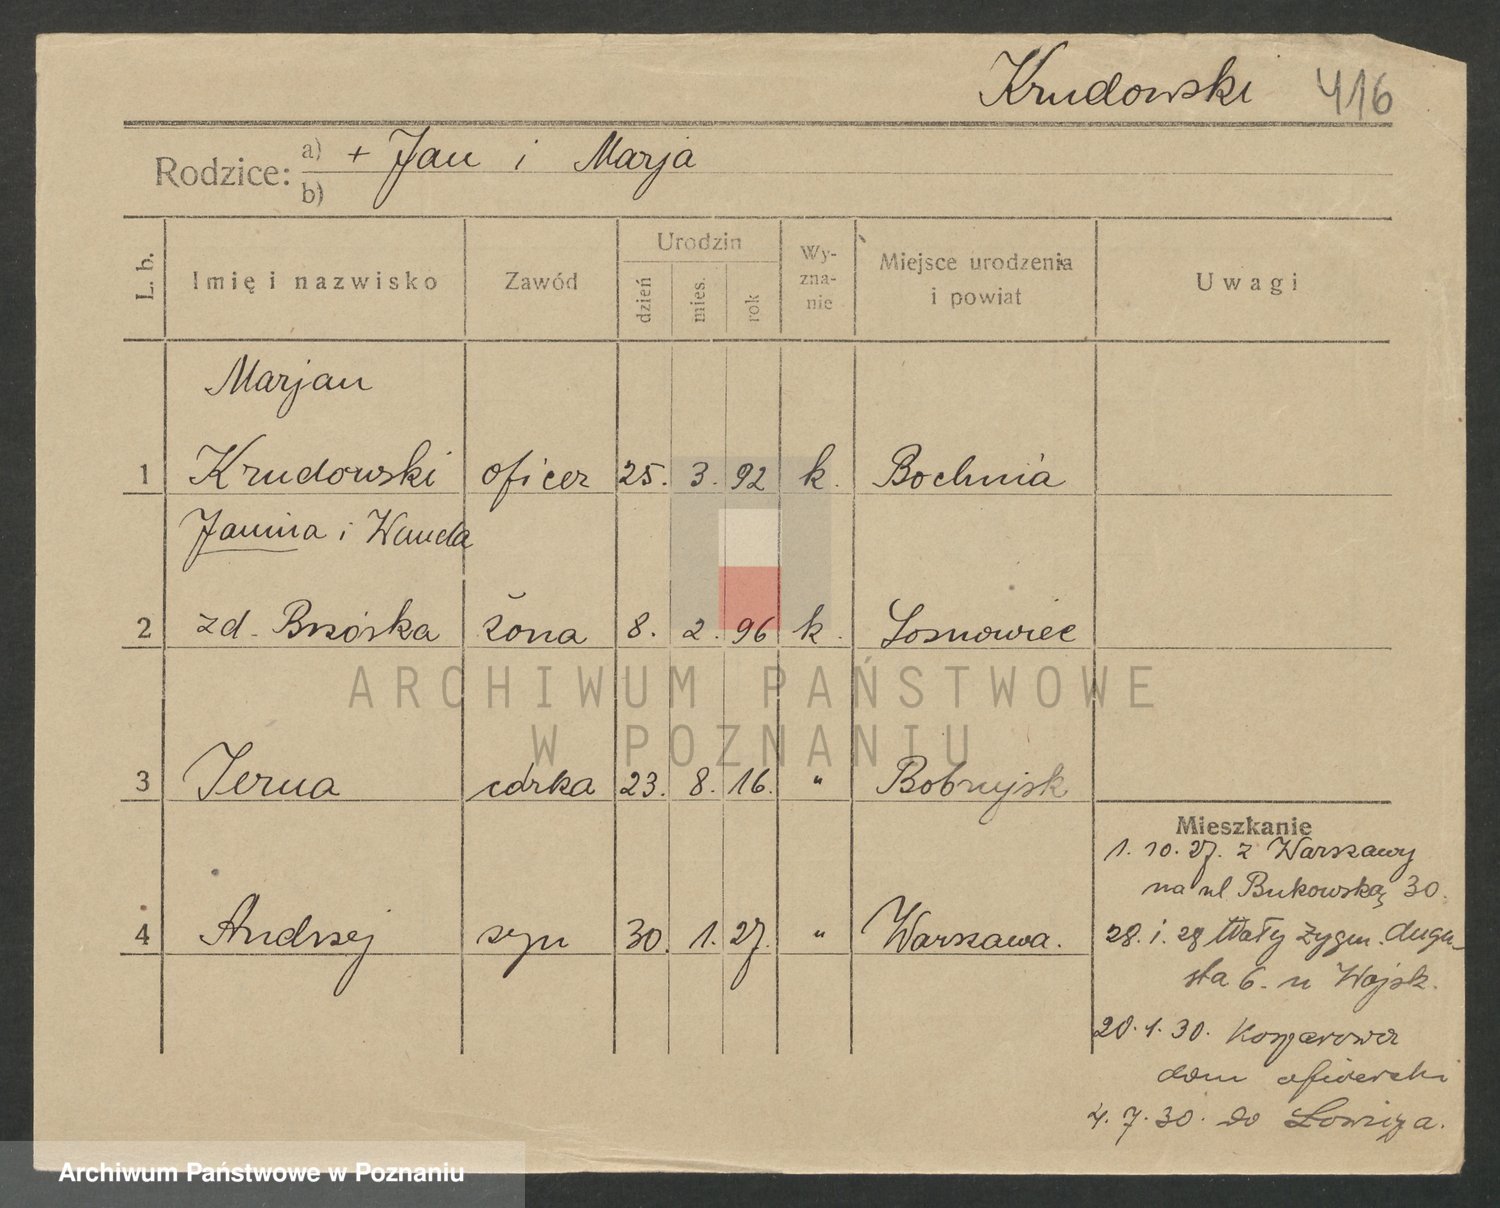 Krudowski 416
Rodzice: a) + Jan i Marja
b)
L. b. Imię i nazwisko Zawód Urodzin dzień mies. rok Wy-zna-nie Miejsce urodzenia i powiat Uwagi
Marjan
1 Krudowski oficer 25. 3. 92 k. Bochnia
Janina i Wanda
2 zd. Brzóska żona 8. 2. 96 k. Sosnowiec
ARCHIWUM PAŃSTWOWE
W POZNANIU
3 Jerna córka 23. 8. 16. " Bobrujsk
4 Andrzej syn 30. 1. 27. " Warszawa.
Mieszkanie
1. 10. 27. z Warszawy
na ul Bukowską 30.
28. 1. 28 Wały Zygm. Augu-
sta 6. u Wojsk.
20. 1. 30. Kosparowa
dom oficerski
4. 7. 30. do Łowicza.
Archiwum Państwowe w Poznaniu